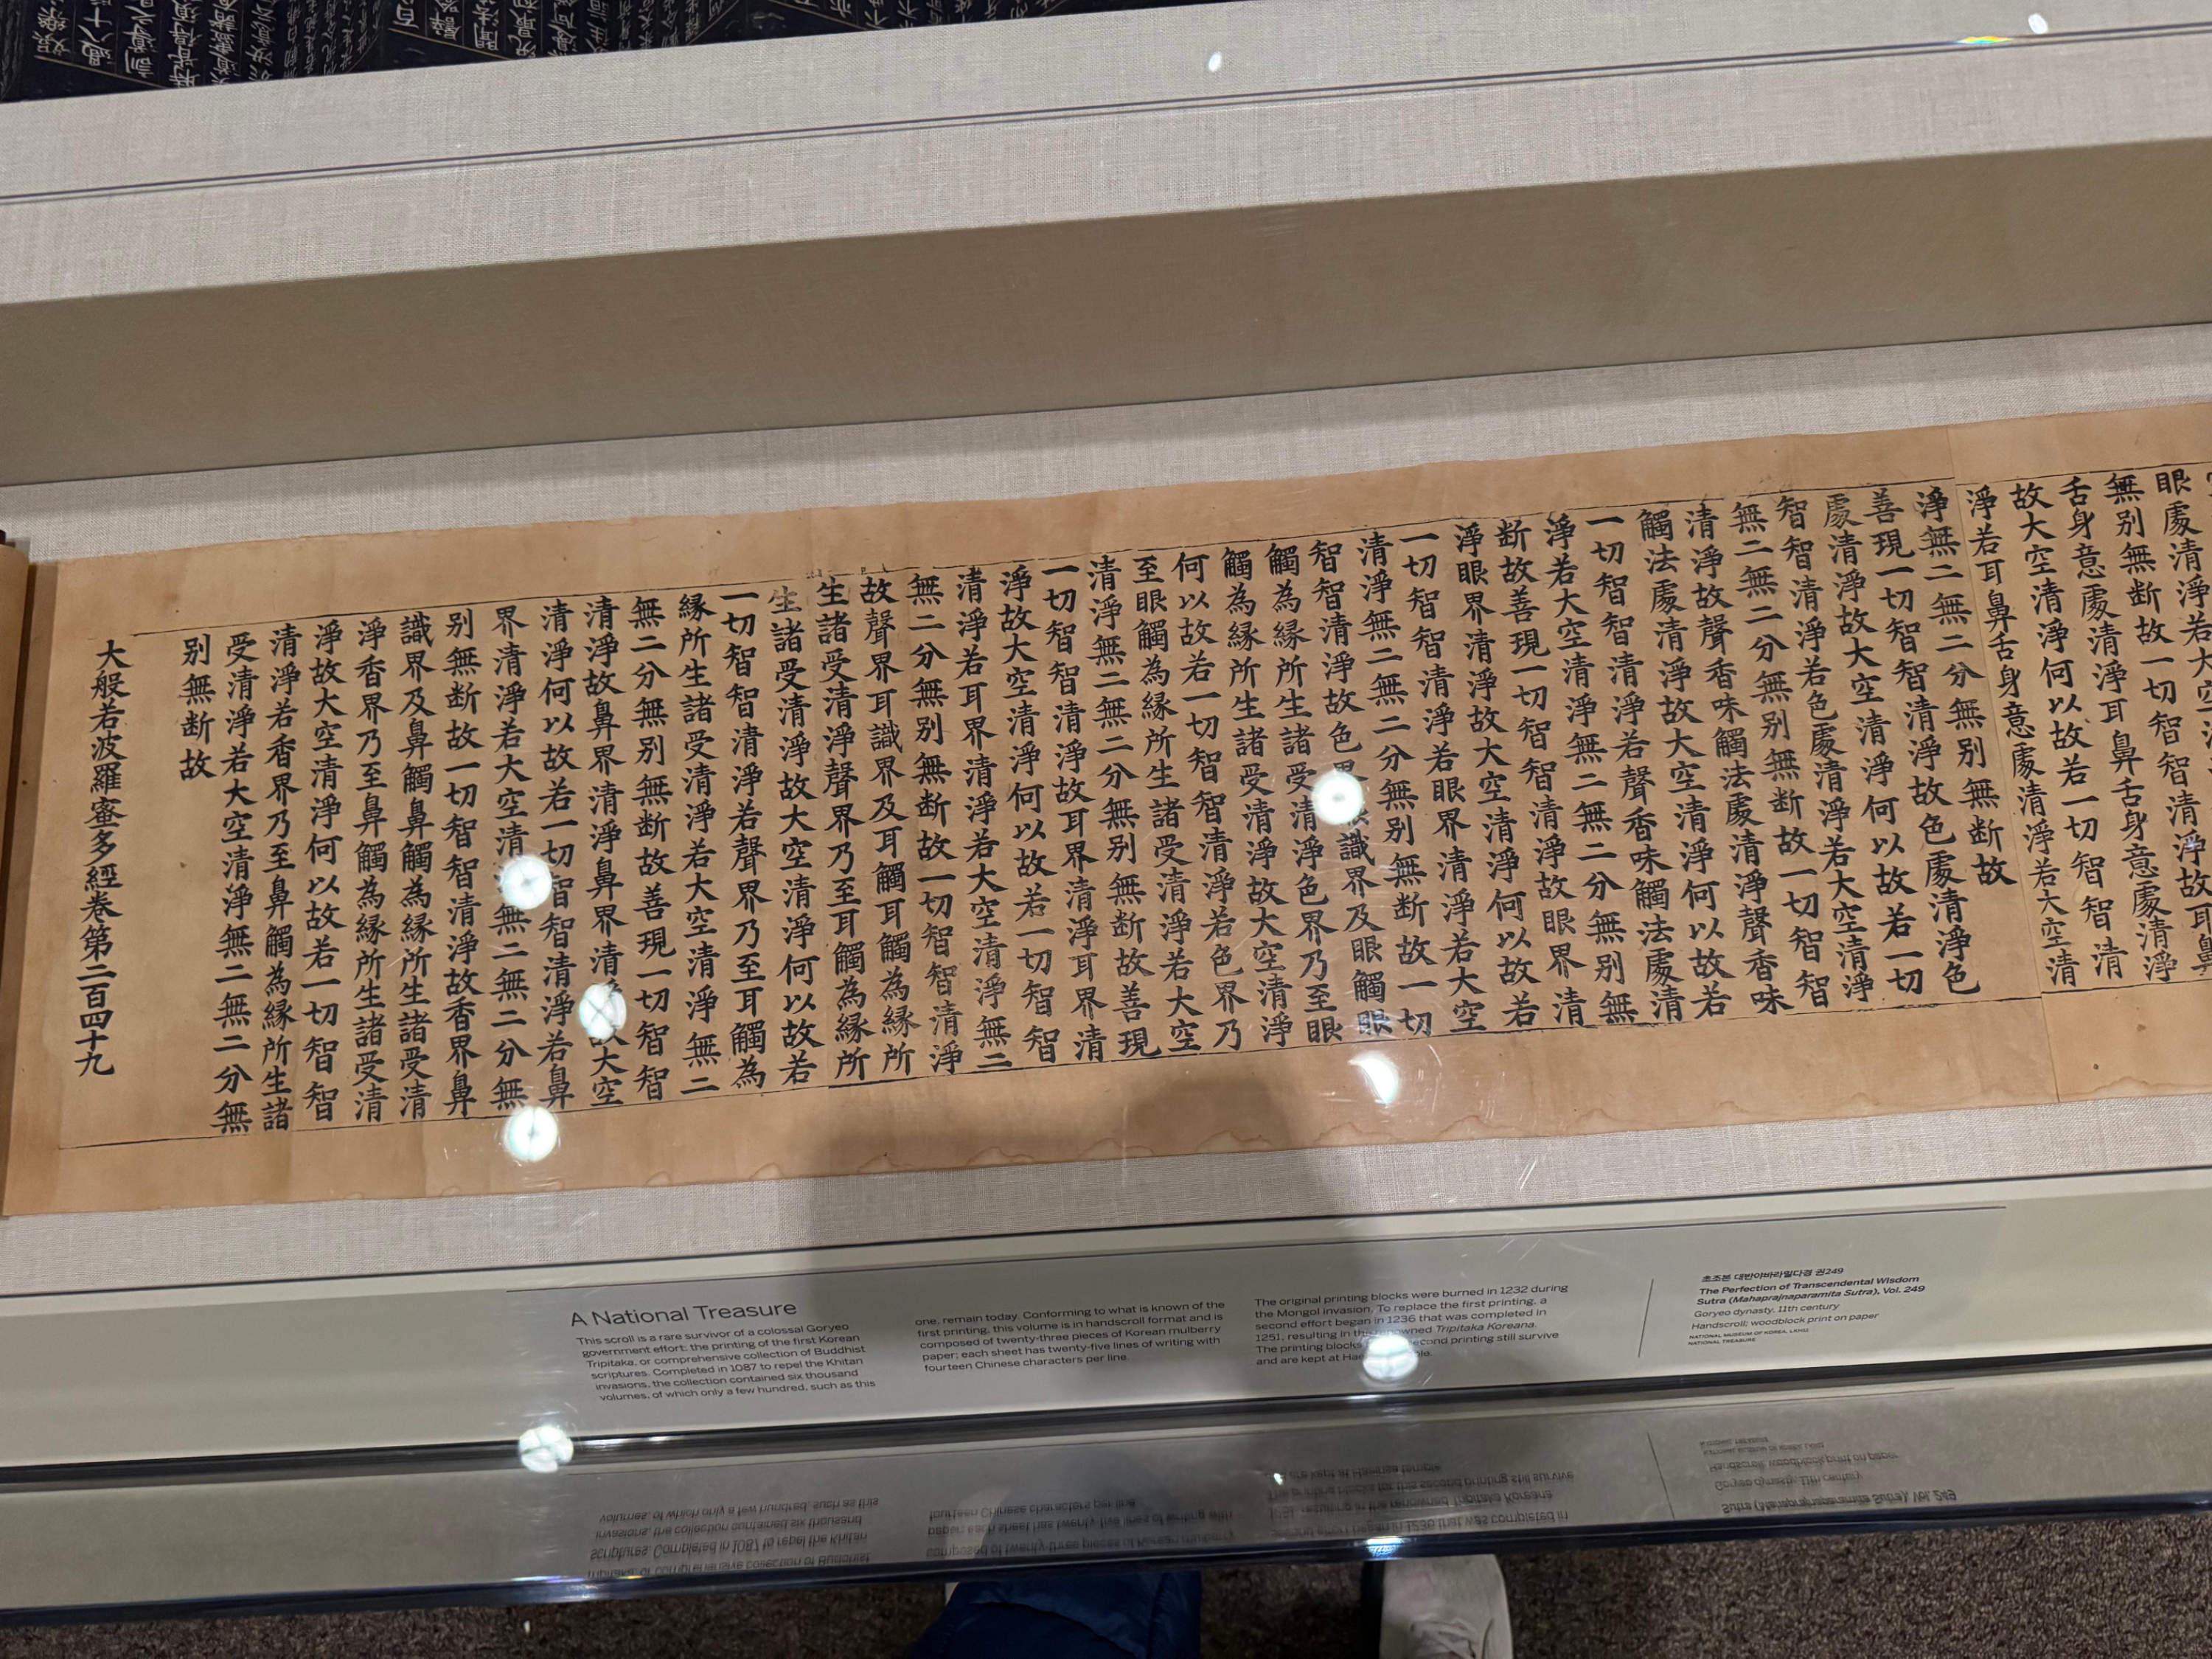 眼處清淨若大空
無别無断故一切智智清淨故耳鼻
舌身意處清淨耳鼻舌身意處清淨
故大空清淨何以故若一切智智清
淨若耳鼻舌身意處清淨若大空清
淨無二無二分無别無断故
善現一切智智清淨故色處清淨色
處清淨故大空清淨何以故若一切
智智清淨若色處清淨若大空清淨
無二無二分無别無断故一切智智
清淨故聲香味觸法處清淨聲香味
觸法處清淨故大空清淨何以故若
一切智智清淨若聲香味觸法處清
淨若大空清淨無二無二分無别無
断故善現一切智智清淨故眼界清
淨眼界清淨故大空清淨何以故若
一切智智清淨若眼界清淨若大空
清淨無二無二分無别無断故一切
智智清淨故色界眼識界及眼觸眼
觸為縁所生諸受清淨色界乃至眼
觸為縁所生諸受清淨故大空清淨
何以故若一切智智清淨若色界乃
至眼觸為縁所生諸受清淨若大空
清淨無二無二分無别無断故善現
一切智智清淨故耳界清淨耳界清
淨故大空清淨何以故若一切智智
清淨若耳界清淨若大空清淨無二
無二分無别無断故一切智智清淨
故聲界耳識界及耳觸耳觸為縁所
生諸受清淨聲界乃至耳觸為縁所
生諸受清淨故大空清淨何以故若
一切智智清淨若聲界乃至耳觸為
縁所生諸受清淨若大空清淨無二
無二分無别無断故善現一切智智
清淨故鼻界清淨鼻界清淨故大空
清淨何以故若一切智智清淨若鼻
界清淨若大空清淨無二無二分無
别無断故一切智智清淨故香界鼻
識界及鼻觸鼻觸為縁所生諸受清
淨香界乃至鼻觸為縁所生諸受清
淨故大空清淨何以故若一切智智
清淨若香界乃至鼻觸為縁所生諸
受清淨若大空清淨無二無二分無
别無断故
大般若波羅蜜多經卷第二百四十九
A National Treasure
This scroll is a rare survivor of a colossal Goryeo
government effort: the printing of the first Korean
Tripitaka, or comprehensive collection of Buddhist
scriptures. Completed in 1087 to repel the Khitan
invasions, the collection contained six thousand
volumes, of which only a few hundred, such as this
one, remain today. Conforming to what is known of the
first printing, this volume is in handscroll format and is
composed of twenty-three pieces of Korean mulberry
paper; each sheet has twenty-five lines of writing with
fourteen Chinese characters per line.
The original printing blocks were burned in 1232 during
the Mongol invasion. To replace the first printing, a
second effort began in 1236 that was completed in
1251, resulting in the renowned Tripitaka Koreana.
The printing blocks second printing still survive
and are kept at
초조본 대반야바라밀다경 권249
The Perfection of Transcendental Wisdom
Sutra (Mahaprajnaparamita Sutra), Vol. 249
Goryeo dynasty, 11th century
Handscroll; woodblock print on paper
NATIONAL MUSEUM OF KOREA,
NATIONAL TREASURE